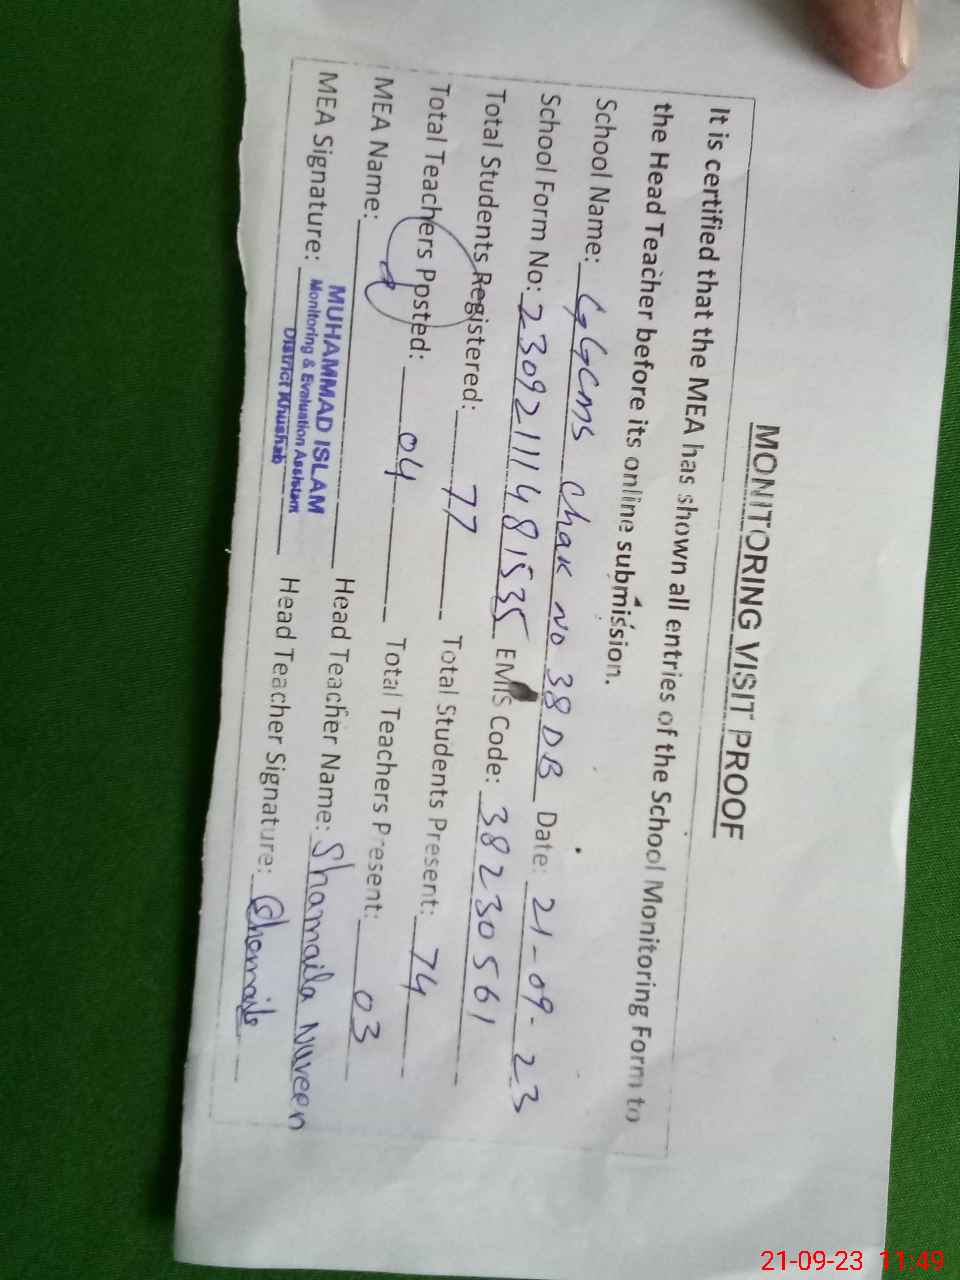 MONITORING VISIT PROOF
It is certified that the MEA has shown all entries of the School Monitoring Form to
the Head Teacher before its online submission.
School Name: GGCMS Chak No 38 DB Date: 21-09-23
School Form No: 23092111481535 EMIS Code: 38230561
Total Students Registered: 77 Total Students Present: 74
Total Teachers Posted: 04 Total Teachers Present: 03
MEA Name: Head Teacher Name: Shamaila Nureen
MUHAMMAD ISLAM
Monitoring & Evaluation Assistant
District Khushab
MEA Signature: Head Teacher Signature: Shamaila
21-09-23 11:49